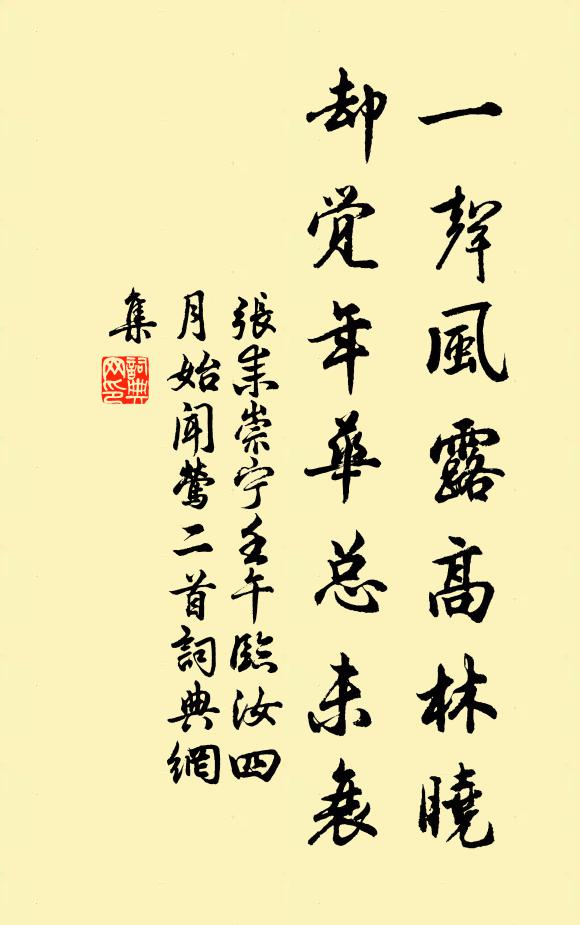 一聲風露高林曉
却觉年華总未衰
張耒崇宁壬午臨汝四
月始聞鶯二首詞典網
集
詞典
网印